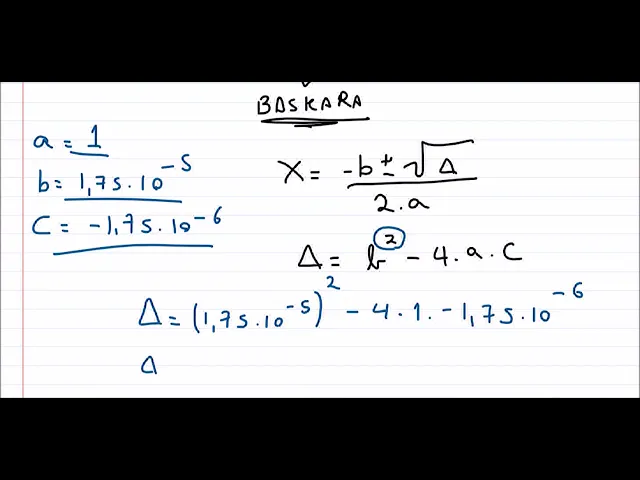 BASKARA
a = 1
b = 1,75 . 10^-5
C = -1,75 . 10^-6
X = (-b ± √Δ) / 2.a
Δ = b² - 4.a.C
Δ = (1,75 . 10^-5)² - 4 . 1 . -1,75 . 10^-6
Δ